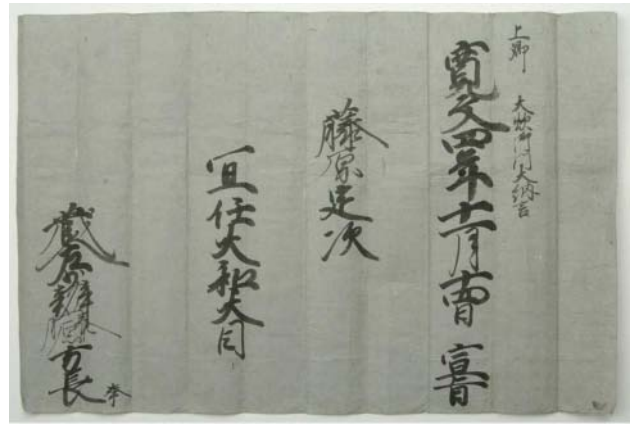 上卿 大炊御門大納言
寛文四年十一月十四日 宣旨
藤原定次
宜任大和大目
蔵人 藤原方長 奉